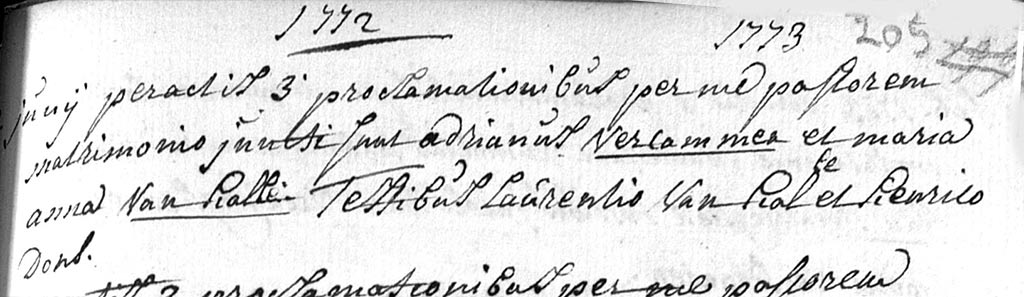 1772
1773 205
junij peractis 3 proclamationibus per me pastorem
matrimonio juncti sunt adrianus Vercammen et maria
anna Van Halle Testibus Laurentio Van Hal et henrico
Dons.
proclamationibus per me pastorem